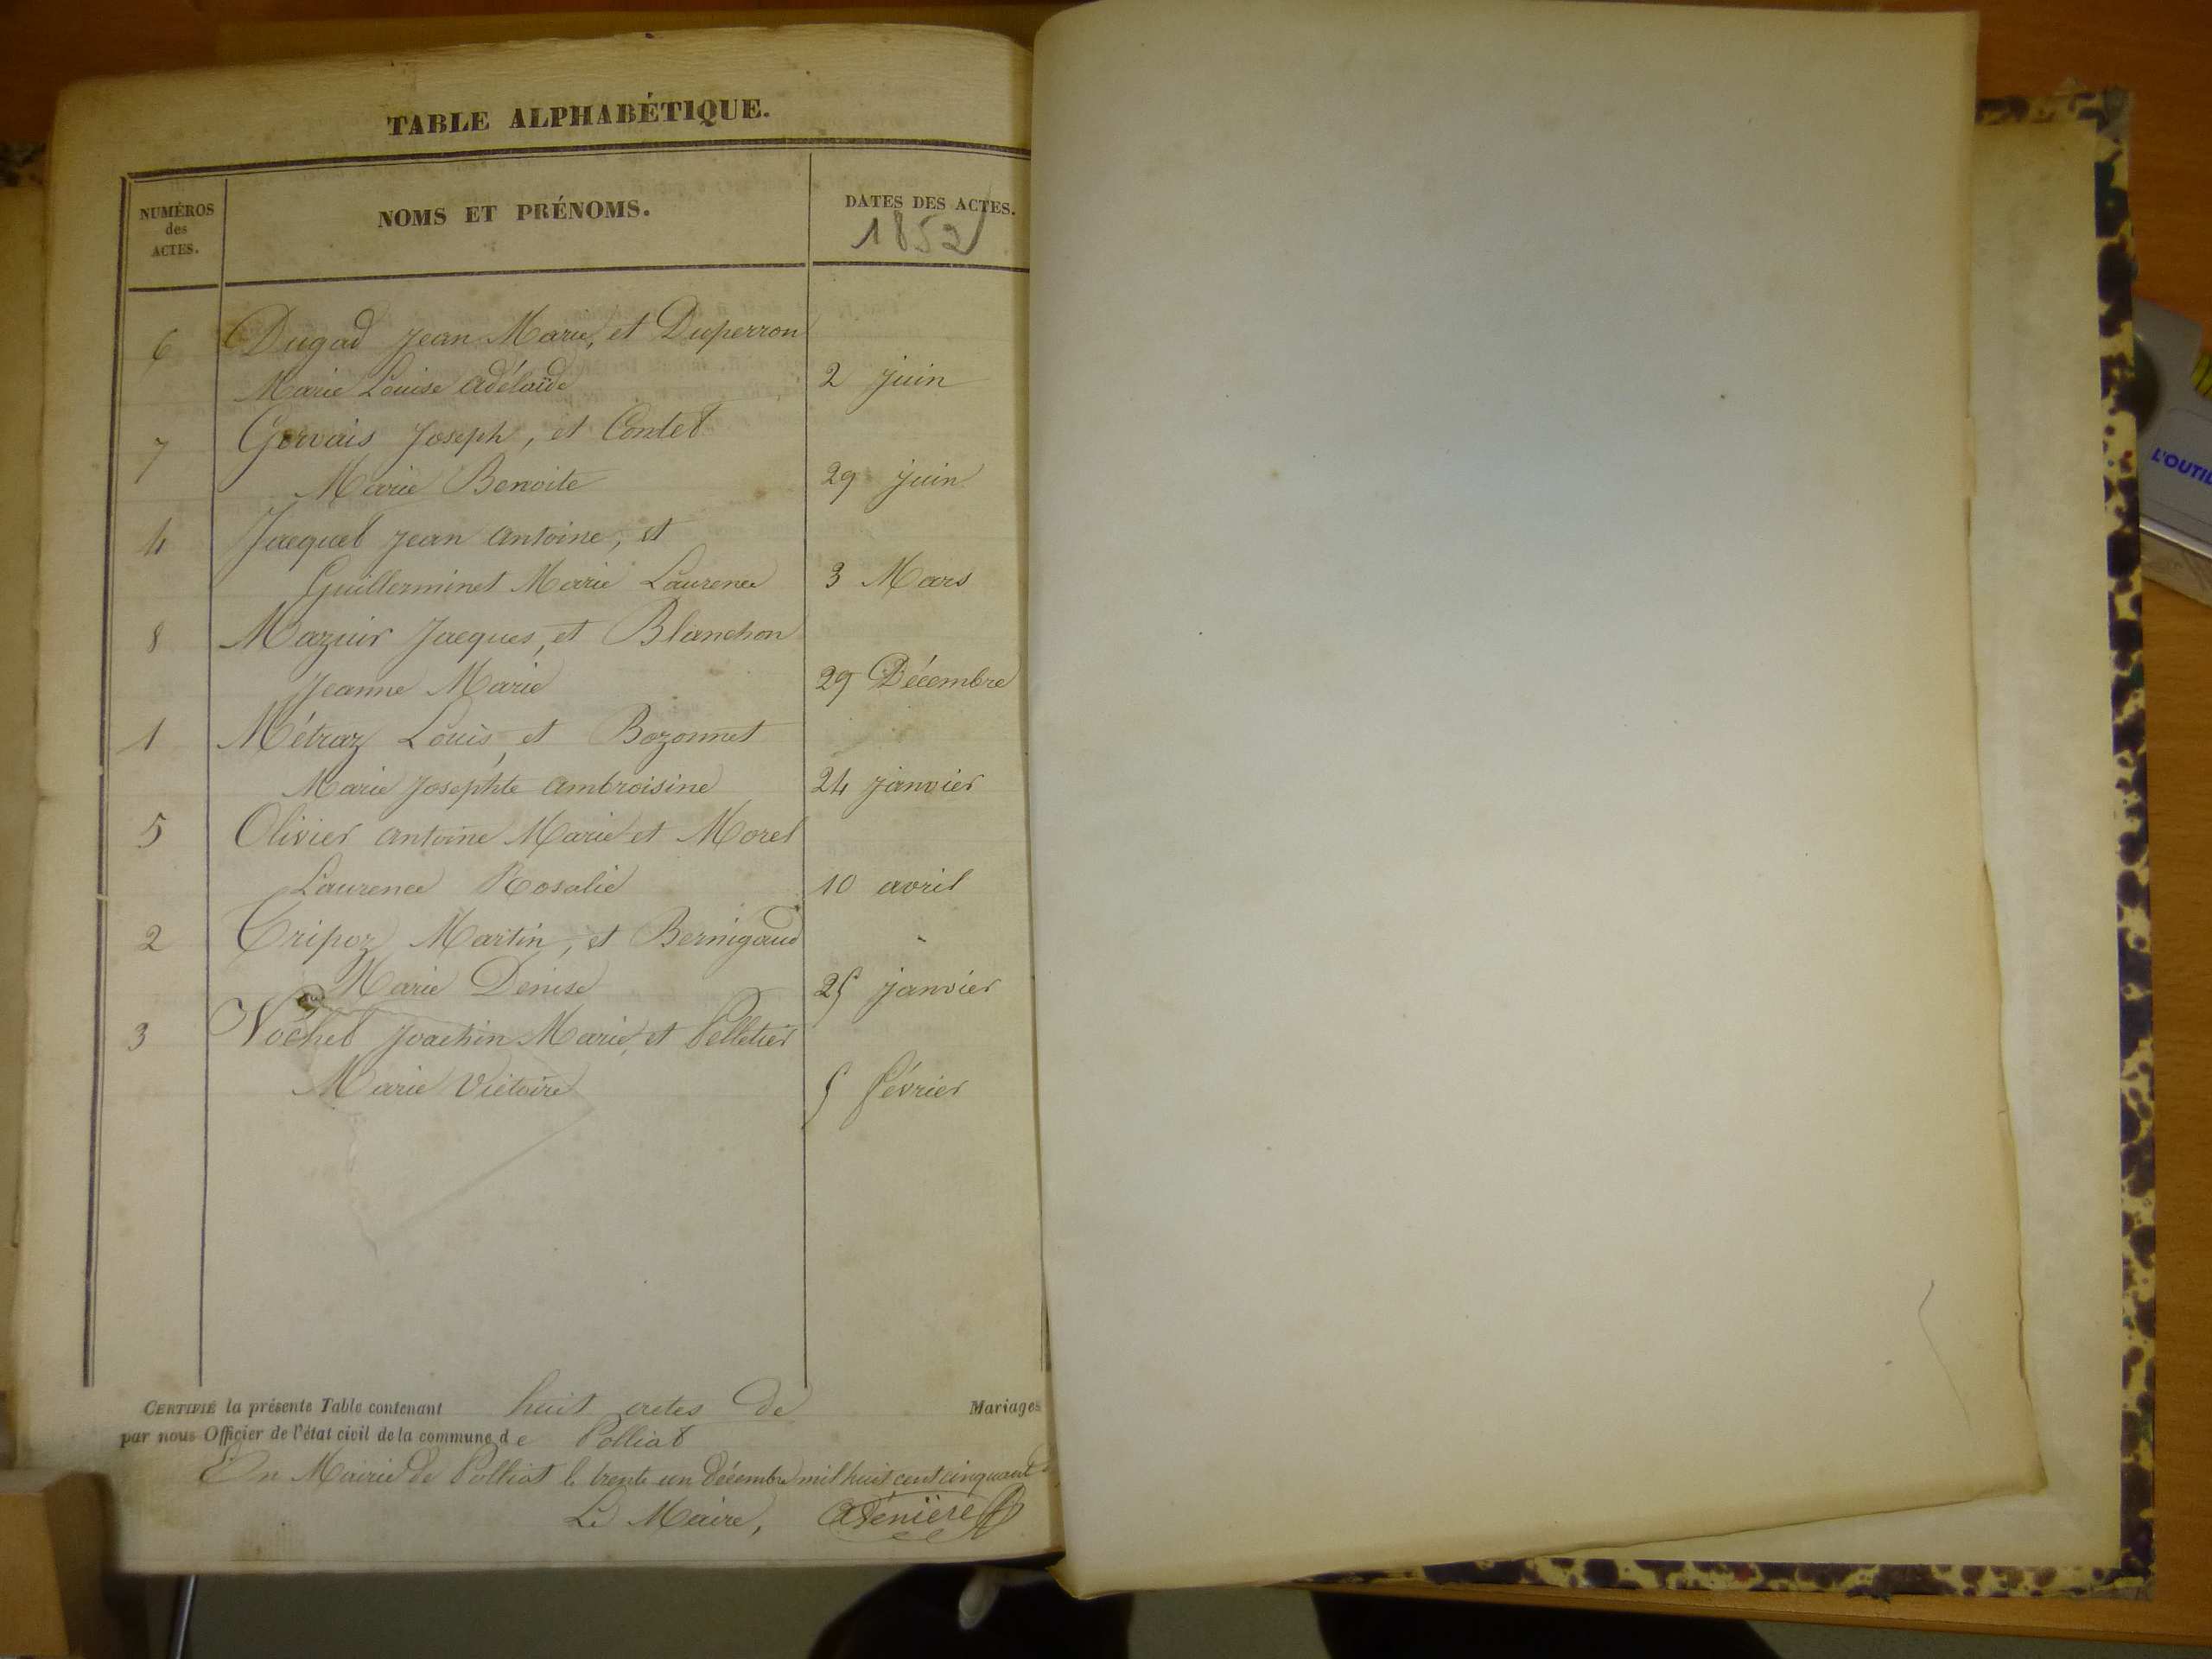 TABLE ALPHABÉTIQUE.
NUMÉROS
des
ACTES.
NOMS ET PRÉNOMS.
DATES DES ACTES.
1852
6 Dugad Jean Marie, et Duperron
Marie Louise adélaïde 2 juin
7 Gervais Joseph, et Contet
Marie Benoite 29 juin
4 Jacquet Jean antoine, et
Guillerminet Marie Laurence 3 Mars
8 Mazuir Jacques, et Blanchon
Jeanne Marie 29 Décembre
1 Métraz Louis, et Bozonnet
Marie Josephte ambroisine 24 janvier
5 Olivier antoine Marie et Morel
Laurence Rosalie 10 avril
2 Tripoz Martin, et Bernigaud
Marie Denise 25 janvier
3 Vochet Joachin Marie, et Pelletier
Marie Victoire 5 février
CERTIFIÉ la présente Table contenant huit actes de Mariages
par nous Officier de l'état civil de la commune de Polliat
En Mairie de Polliat le trente un Décembre mil huit cent cinquante
Le Maire,
L'OUTIL